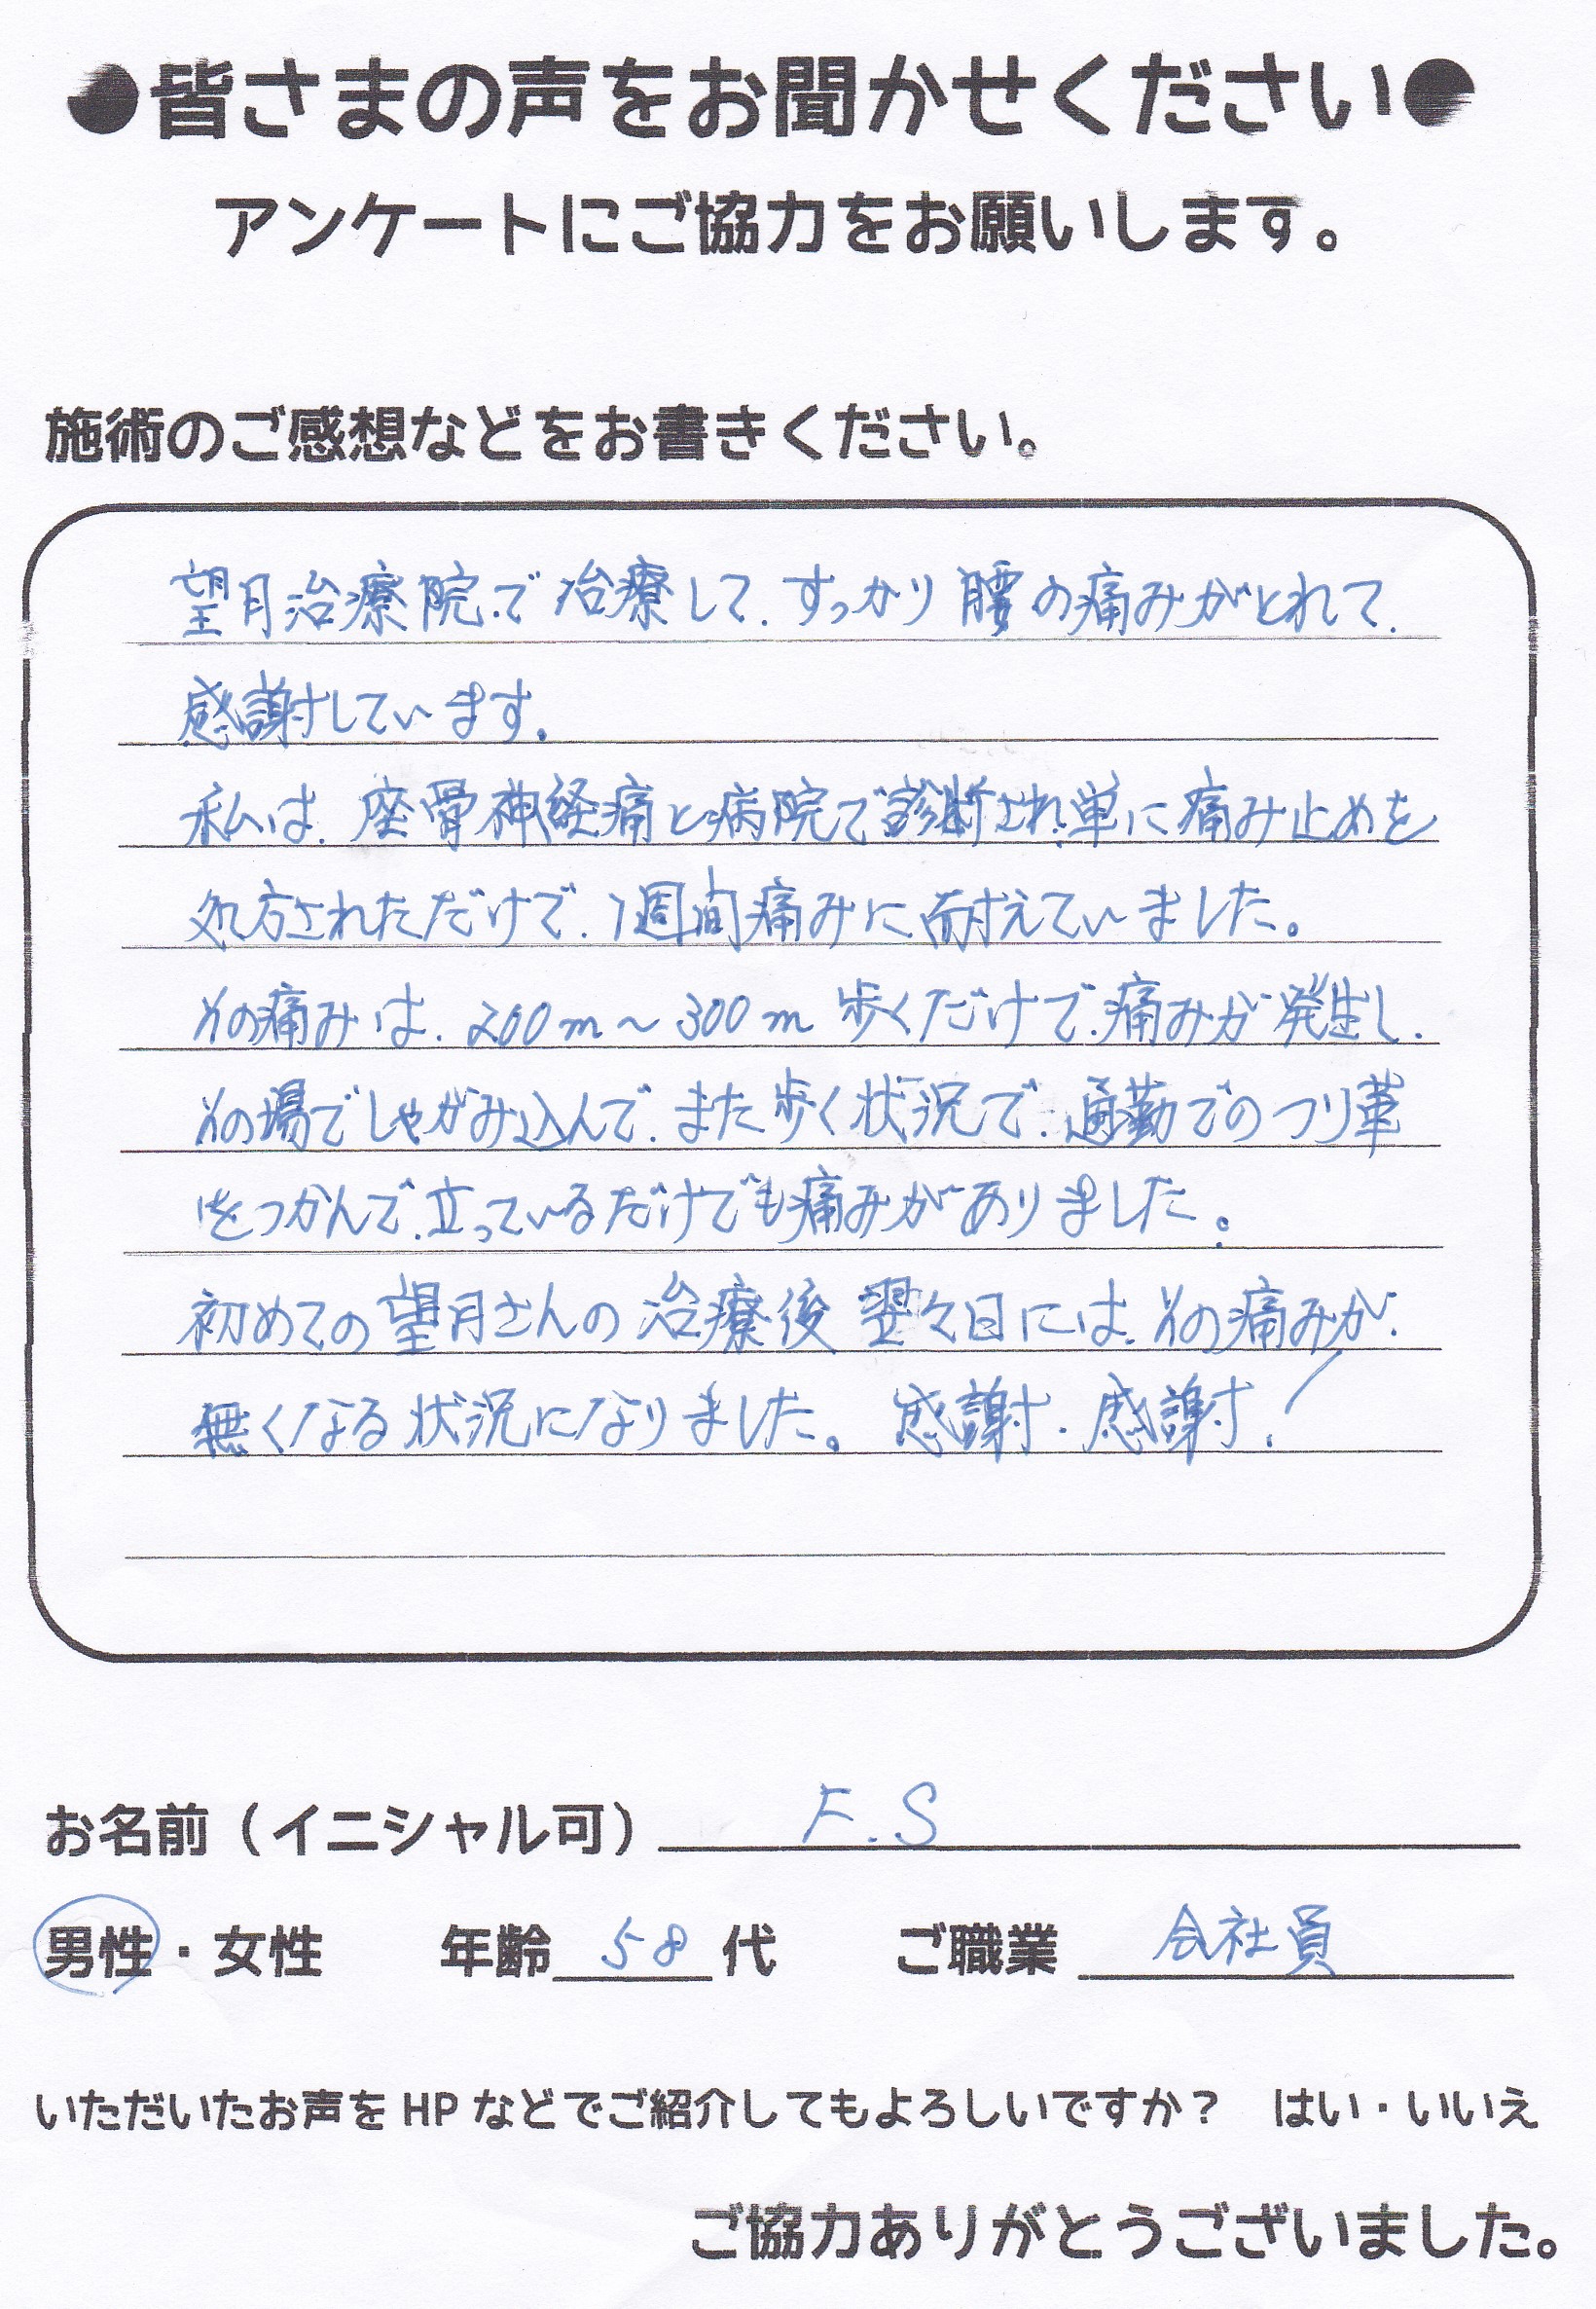 ●皆さまの声をお聞かせください●
アンケートにご協力をお願いします。
施術のご感想などをお書きください。
望月治療院で治療して、すっかり腰の痛みがとれて、
感謝しています。
私は、座骨神経痛と病院で診断され、単に痛み止めを
処方されただけで、1週間痛みに耐えていました。
その痛みは、200m～300m歩くだけで、痛みが発生し、
その場でしゃがみ込んで、また歩く状況で、通勤でのつり革
をつかんで、立っているだけでも痛みがありました。
初めての望月さんの治療後翌々日には、その痛みが、
無くなる状況になりました。感謝、感謝！
お名前（イニシャル可） F.S
男性・女性 年齢 58 代 ご職業 会社員
いただいたお声をHPなどでご紹介してもよろしいですか？ はい・いいえ
ご協力ありがとうございました。